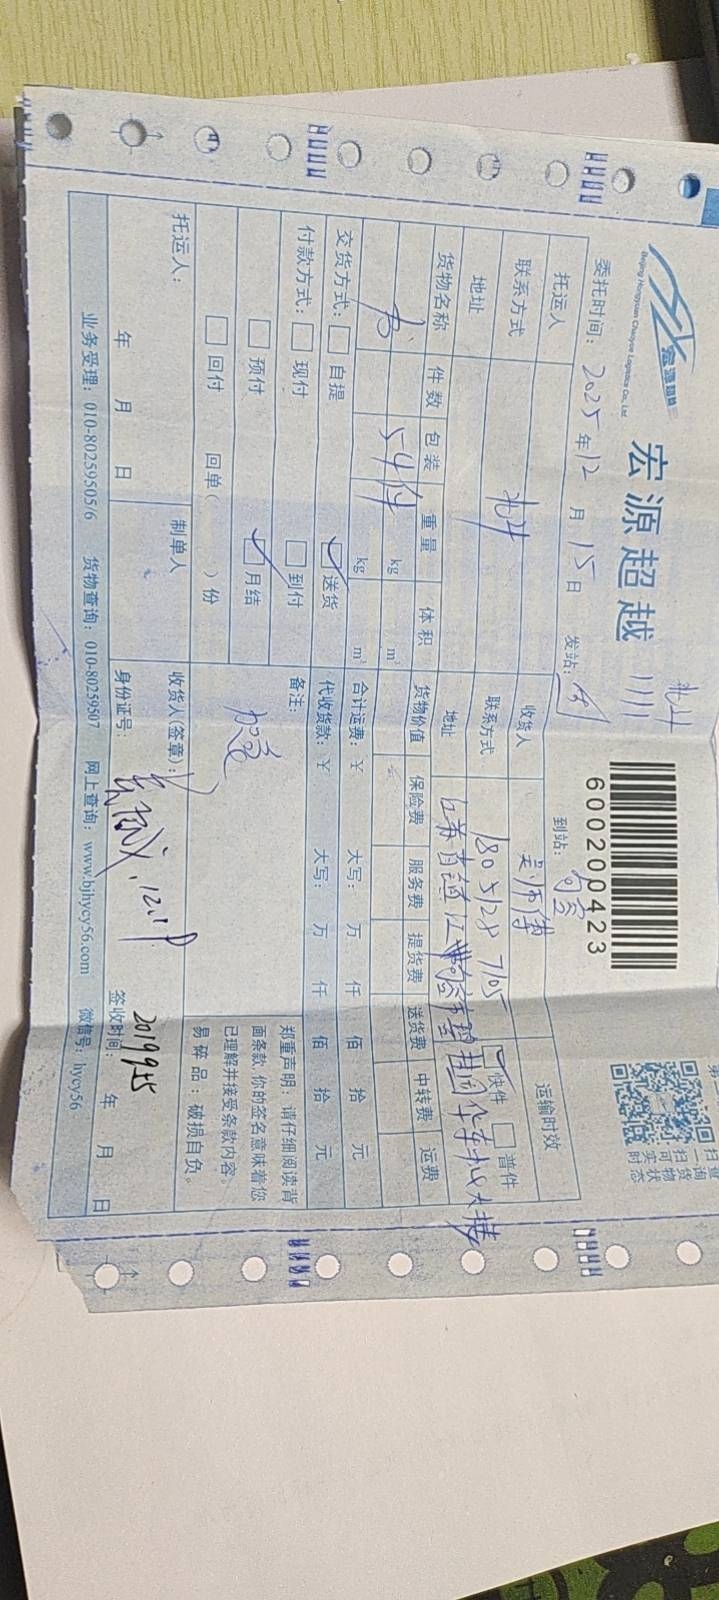 宏源超越
Beijing Hongyuan Chaoyue Logistics Co., Ltd.
宏源超越
北斗
600200423
扫一扫
委托时间：2025年12月15日 发站： 到站：句容
托运人 收货人 吴师傅 运输时效
联系方式 北斗 联系方式 180 5128 7105 快件 普件
地址 地址 江苏省镇江
货物名称 件数 包装 重量 体积 货物价值 保险费 服务费 提货费 送货费 中转费 运费
54件 kg m³
kg m³
交货方式： 自提 送货 合计运费：￥ 大写： 万 仟 佰 拾 元
付款方式： 现付 到付 代收货款：￥ 大写： 万 仟 佰 拾 元
预付 月结 备注：
加急
回付 回单（ ）份
郑重声明：请仔细阅读背
面条款,你的签名意味着您
已理解并接受条款内容。
易碎品：破损自负。
托运人： 制单人 收货人(签章)：
年 月 日 身份证号： 签收时间： 年 月 日
业务受理：010-80259505/6 货物查询：010-80259507 网上查询：www.bjhycy56.com 微信号：hycy56